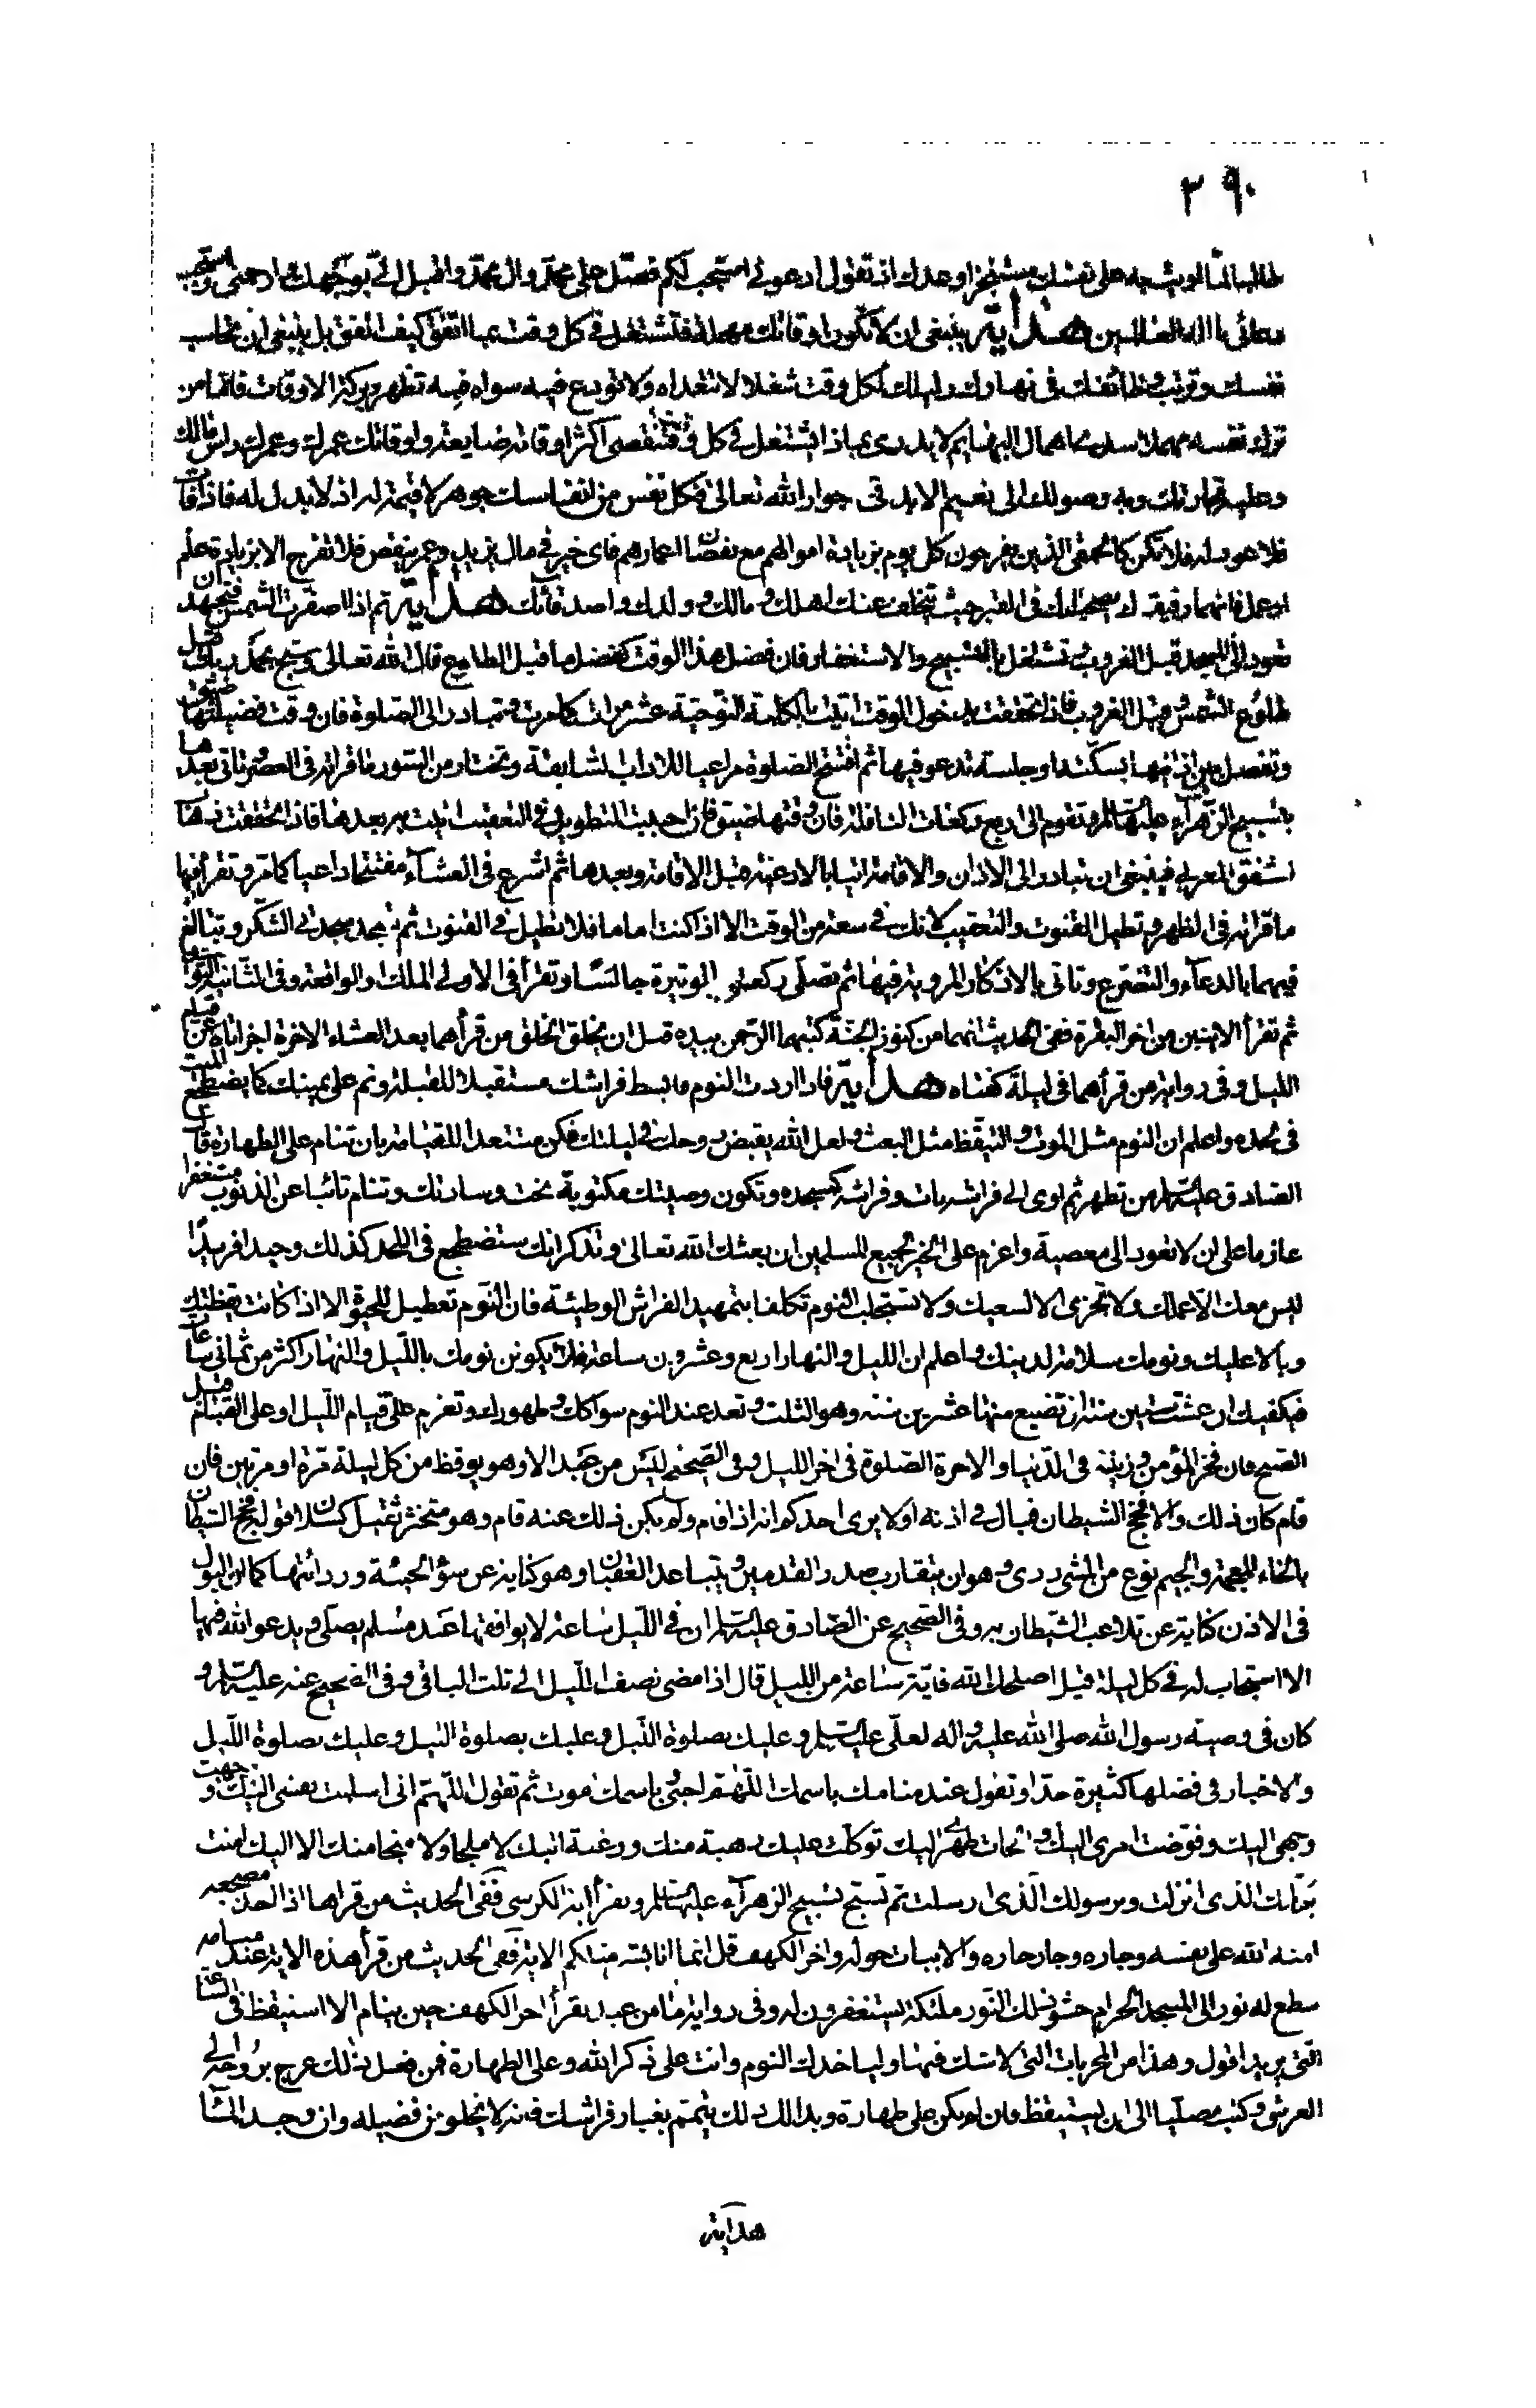 ٣٩٠
طالبا لما اوجبته على نفسك مستنجزا وعدك اذ تقول ادعوني استجب لكم فصل على محمد وال محمد واقبل الي بوجهك وارحمني واستجب
دعائي يا اله العالمين هداية ينبغي ان لا تكون اوقاتك مهملة فتشتغل في كل وقت بما اتفق كيف اتفق بل ينبغي ان تحاسب
نفسك وترتب وظائفك في نهارك وليلك لكل وقت شغلا لا تتعداه ولا تودع فيه سواه فبه تظهر بركة الاوقات فاما من
ترك نفسه مهملا سدى اهمال البهائم لا يدري بماذا يشتغل في كل وقت فتنقضي اكثر اوقاته ضايعة واوقاتك عمرك وعمرك راس مالك
وعليه تجارتك وبه وصولك الى نعيم الابد في جوار الله تعالى فكل نفس من انفاسك جوهر لا قيمة له اذ لا بدل له فاذا فات
فلا عود له فلا تكن كالحمقى الذين يفرحون كل يوم بزيادة اموالهم مع نقصان اعمارهم فاي خير في مال يزيد وعمر ينقص فلا تفرح الا بزيادة علم
او عمل فانهما رفيقاك يصحبانك في القبر حيث يتخلف عنك اهلك ومالك وولدك واصدقائك هداية ثم اذا اصفرت الشمس فتجتهد ان
تعود الى المسجد قبل الغروب وتشتغل بالتسبيح والاستغفار فان فضل هذا الوقت كفضل ما قبل الطلوع قال الله تعالى وسبح بحمد ربك قبل
طلوع الشمس وقبل الغروب فاذا تحققت دخول الوقت اتيت بالكلمة التوحيدية عشر مرات كما مرت وتبادر الى الصلوة فان وقت فضيلتها ضيق
وتفصل بين اذانيها بسكتة او جلسة تدعو فيها ثم افتتح الصلوة مراعيا للاداب السابقة وتختار من السور ما قرأته في العصر وتاتي بعدها
بتسبيح الزهراء عليها السلم وتقوم الى اربع ركعات النافلة فان وقتها ضيق فان احببت التطويل في التعقيب اتيت به بعدها فاذا تحققت ذهاب
الشفق المغربي فينبغي ان تبادر الى الاذان والاقامة اتيا بالادعية قبل الاقامة وبعدها ثم اشرع في العشاء مفتتحا داعيا كما مر وتقرأ فيها
ما قرأته في الظهر وتطيل القنوت والتعقيب لانك في سعة من الوقت الا اذا كنت اماما فلا تطيل في القنوت ثم تسجد سجدتي الشكر وتبالغ
فيهما بالدعاء والتضرع وتاتي بالاذكار المروية فيها ثم تصلي ركعتي الوتيرة جالسا وتقرأ في الاولى الملك او الواقعة وفي الثانية التوحيد
ثم تقرأ الايتين من اخر البقرة ففي الحديث انهما من كنوز الجنة كتبهما الرحمن بيده قبل ان يخلق الخلق من قرأهما بعد العشاء الاخرة اجزأتاه عن قيام
الليل وفي رواية من قرأهما في ليلة كفتاه هداية فاذا اردت النوم فابسط فراشك مستقبل القبلة ونم على يمينك كما يضطجع الميت
في لحده واعلم ان النوم مثل الموت والتيقظ مثل البعث ولعل الله يقبض روحك في ليلتك فكن مستعدا للقائه بان تنام على الطهارة قال
الصادق عليه السلم من تطهر ثم اوى الى فراشه بات وفراشه كمسجده وتكون وصيتك مكتوبة تحت وسادتك وتنام تائبا عن الذنوب مستغفرا
عازما على ان لا تعود الى معصية واعزم على الخير لجميع المسلمين ان بعثك الله تعالى وتذكر انك ستضطجع في اللحد كذلك وحيدا فريدا
ليس معك الا عملك ولا تجزى الا بسعيك ولا تستجلب النوم تكلفا بتمهيد الفراش الوطيئة فان النوم تعطيل للحيوة الا اذا كانت يقظتك
وبالا عليك ونومك سلامة لدينك واعلم ان الليل والنهار اربع وعشرون ساعة فلا يكونن نومك بالليل والنهار اكثر من ثماني ساعات
فيكفيك ان عشت ستين سنة ان تضيع منها عشرين سنة وهو الثلث وتعد عند النوم سواكك وطهورك وتعزم على قيام الليل او على القيام قبل
الصبح فان فخر المؤمن وزينته في الدنيا والاخرة الصلوة في اخر الليل وفي الصحيح ليس من عبد الا وهو يوقظ من كل ليلة مرة او مرتين فان
قام كان ذلك والا فحج الشيطان فبال في اذنه اولا يرى احدكم انه اذا قام ولم يكن ذلك عنه قام وهو متخثر ثقيل كسلان اقول فحج الشيطان
بالخاء المعجمة والجيم نوع من المشي ردي وهو ان يتقارب صدر القدمين ويتباعد العقبان وهو كناية عن سوء الجيئة وردائتها كما ان البول
في الاذن كناية عن تلاعب الشيطان به وفي الصحيح عن الصادق عليه السلم ان في الليل ساعة لا يوافقها عبد مسلم يصلي ويدعو الله فيها
الا استجاب له في كل ليلة قيل اصلحك الله فاية ساعة من الليل قال اذا مضى نصف الليل الى ثلث الباقي وفي الصحيح عنه عليه السلم و
كان في وصية رسول الله صلى الله عليه واله لعلي عليه السلم وعليك بصلوة الليل وعليك بصلوة الليل وعليك بصلوة الليل
والاخبار في فضلها كثيرة جدا وتقول عند منامك باسمك اللهم احيى وباسمك اموت ثم تقول اللهم اني اسلمت نفسي اليك ووجهت
وجهي اليك وفوضت امري اليك والجات ظهري اليك توكلت عليك رهبة منك ورغبة اليك لا ملجا ولا منجا منك الا اليك امنت
بكتابك الذي انزلت وبرسولك الذي ارسلت ثم تسبح تسبيح الزهراء عليها السلم وتقرأ اية الكرسي ففي الحديث من قراها اذا اخذ مضجعه
امنه الله على نفسه وجاره وجار جاره والابيات حوله واخر الكهف قل انما انا بشر مثلكم الاية ففي الحديث من قرأ هذه الاية عند منامه
سطع له نور الى المسجد الحرام حشو ذلك النور ملئكة يستغفرون له وفي رواية ما من عبد يقرأ اخر الكهف حين ينام الا استيقظ في الساعة
التي يريد اقول وهذا من المجربات التي لا شك فيها وليأخذك النوم وانت على ذكر الله وعلى الطهارة فمن فعل ذلك عرج بروحه الى
العرش وكتب مصليا الى ان يستيقظ فان لم يكن على طهارة وبدا لك ذلك تيمم بغبار فراشك فانه لا يخلو من فضيلة وان وجد الماء
هداية